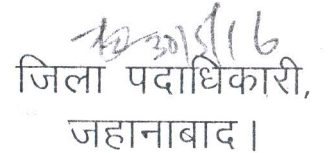 30/5/16
जिला पदाधिकारी,
जहानाबाद।